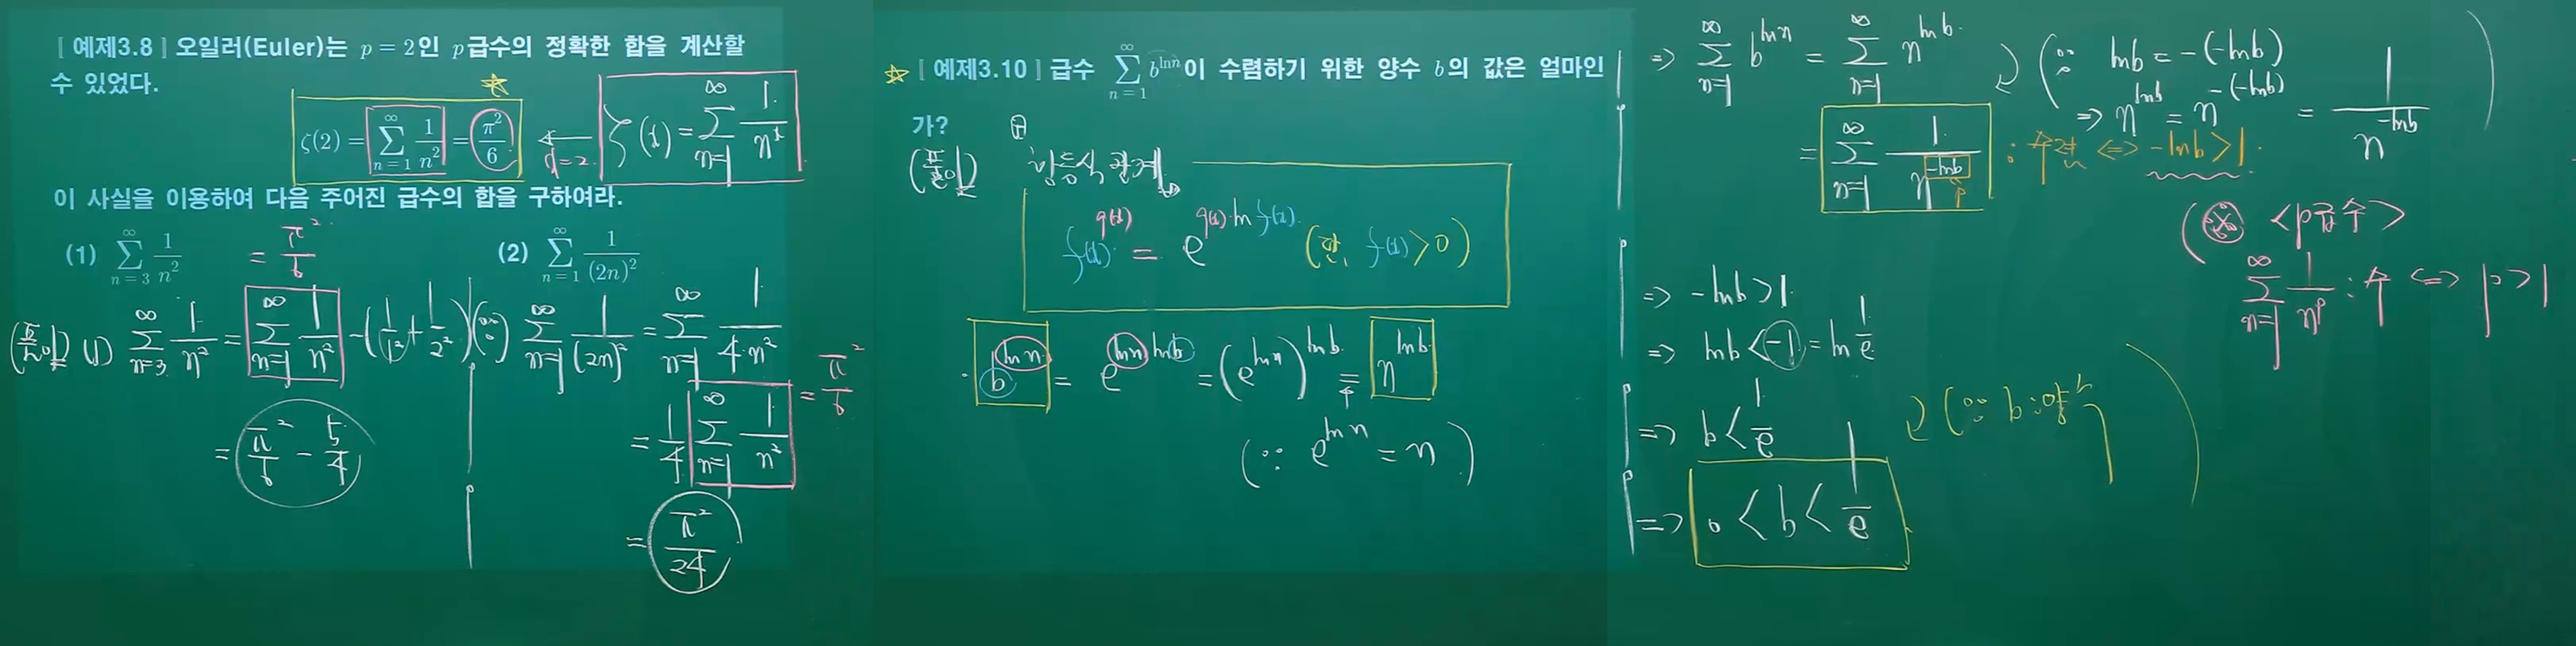 [예제3.8] 오일러(Euler)는 p = 2인 p급수의 정확한 합을 계산할
수 있었다.
ζ(2) = ∑_{n=1}^{∞} 1/n² = π²/6
ζ(x) = ∑_{n=1}^{∞} 1/n^x
x=2.
이 사실을 이용하여 다음 주어진 급수의 합을 구하여라.
(1) ∑_{n=3}^{∞} 1/n²
(2) ∑_{n=1}^{∞} 1/(2n)²
= π²/6
(풀이) (1) ∑_{n=3}^{∞} 1/n² = ∑_{n=1}^{∞} 1/n² - (1/1² + 1/2²)
= π²/6 - 5/4
∑_{n=1}^{∞} 1/(2n)² = ∑_{n=1}^{∞} 1/(4·n²)
= 1/4 ∑_{n=1}^{∞} 1/n²
= π²/6
= π²/24
☆ [예제3.10] 급수 ∑_{n=1}^{∞} b^{ln n}이 수렴하기 위한 양수 b의 값은 얼마인
가?
(풀이)
f(x)^{g(x)} = e^{g(x)·ln f(x)} (단, f(x)>0)
· b^{ln n} = e^{ln n·ln b} = (e^{ln n})^{ln b} = n^{ln b}
(∵ e^{ln n} = n)
⇒ ∑_{n=1}^{∞} b^{ln n} = ∑_{n=1}^{∞} n^{ln b}
(∵ ln b = -(-ln b)
⇒ n^{ln b} = n^{-(-ln b)} = 1/n^{-ln b})
= ∑_{n=1}^{∞} 1/n^{-ln b} : 수렴 ⇔ -ln b > 1.
p
(※ <p급수>
∑_{n=1}^{∞} 1/n^p : 수 ⇔ p>1
⇒ -ln b > 1.
⇒ ln b < -1 = ln 1/e
⇒ b < 1/e
(∵ b : 양수)
⇒ 0 < b < 1/e